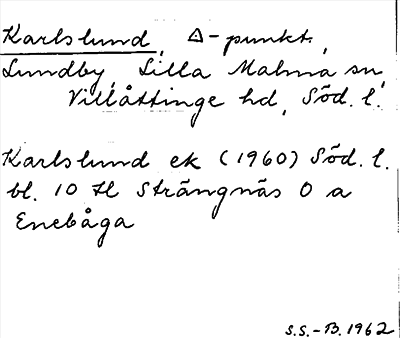 Karlslund, Δ-punkt,
Lundby, Lilla Malma sn,
Villåttinge hd, Söd. l.
Karlslund ek (1960) Söd. l.
bl. 10 H Strängnäs O a
Enebåga
S.S.-B. 1962